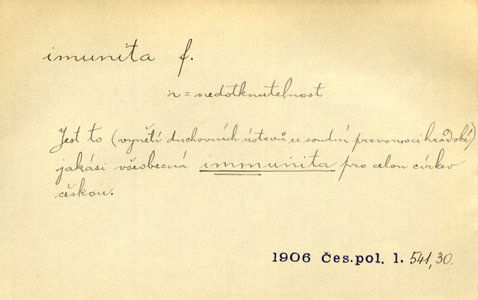 imunita f.
r = nedotknutelnost
Jest to (vynětí duchovních ústavů ze soudní pravomoci hradské)
jakási všeobecná immunita pro celou církev
českou.
1906 Čes. pol. 1. 541, 30.